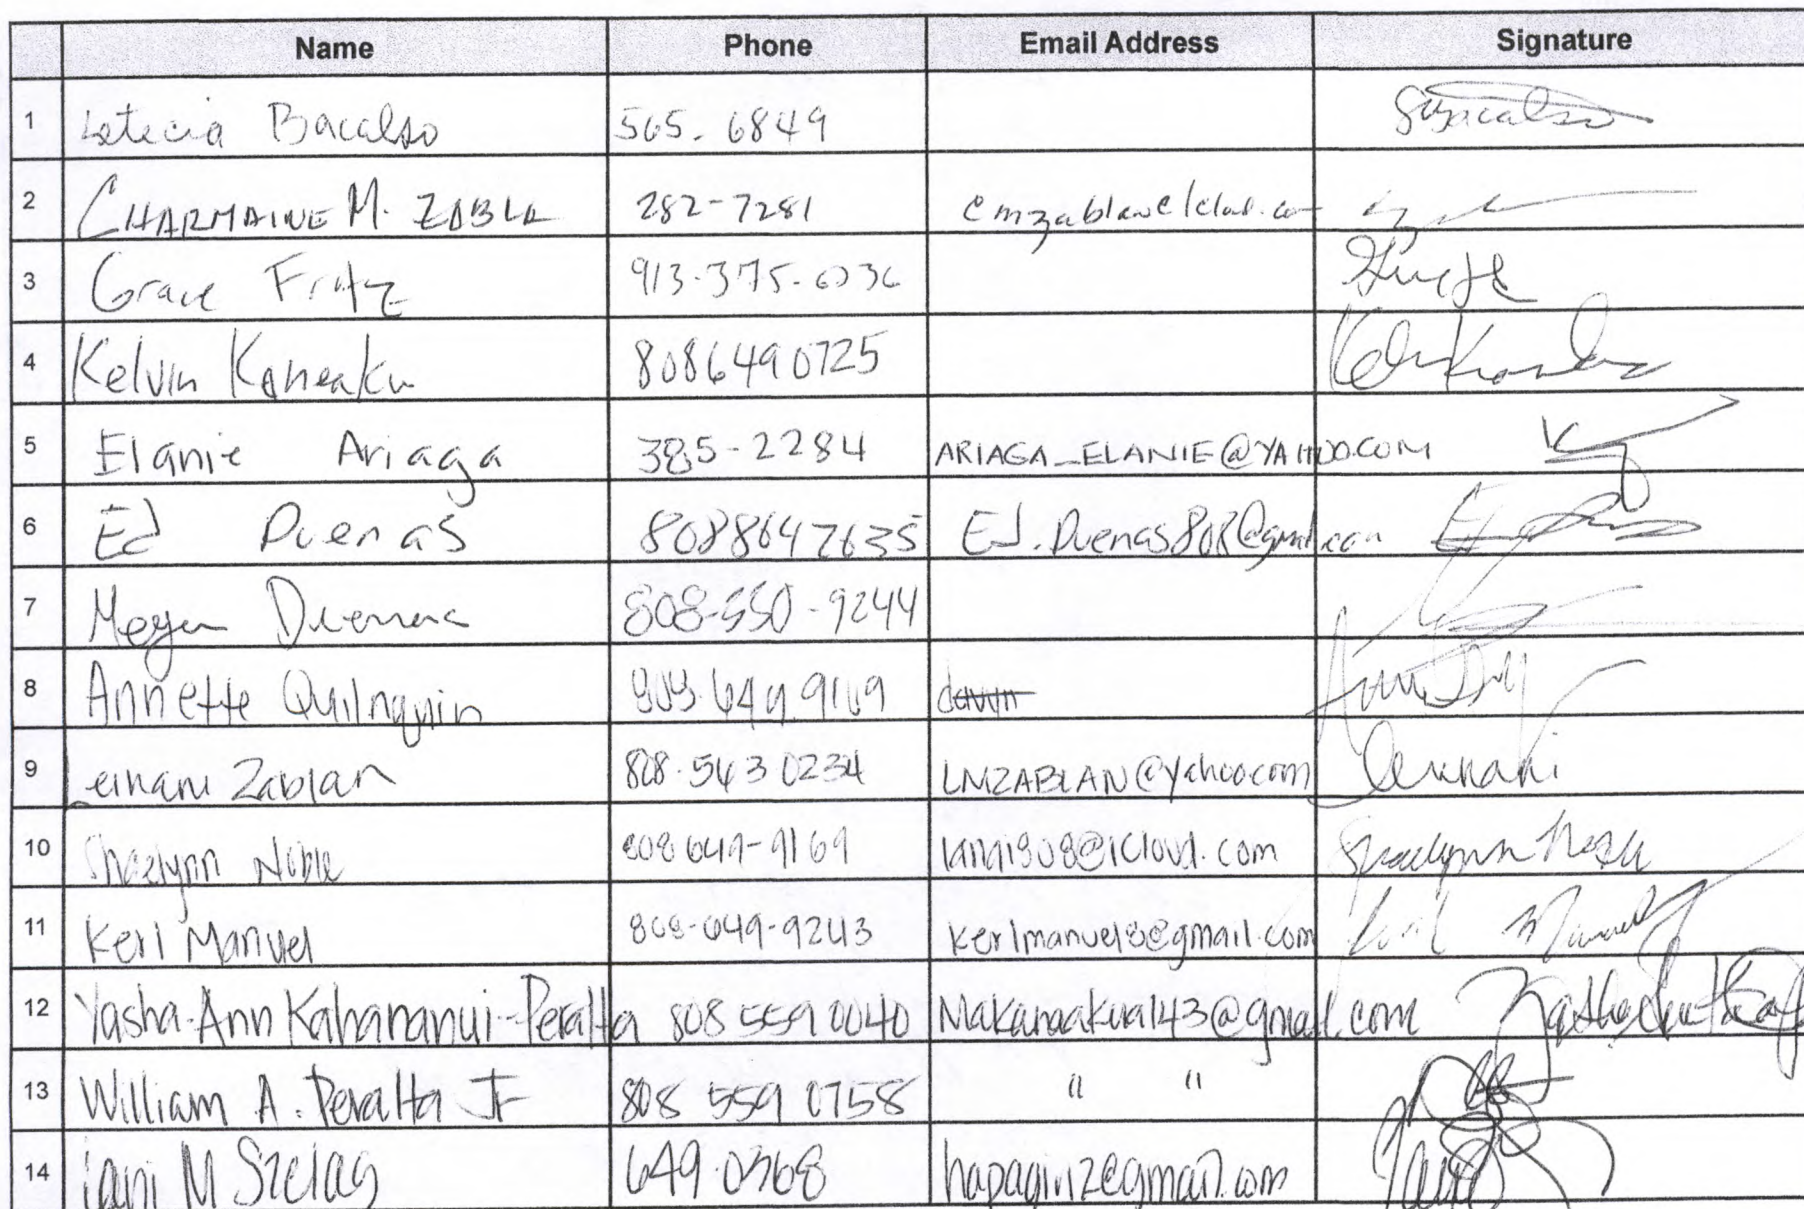 Name Phone Email Address Signature
1 Letecia Bacalso 565-6849
2 CHARMAINE M. ZABLA 282-7281
3 Grace Fritz 913-375-0036
4 Kelvin Kaneaku 8086490725
5 Elanie Ariaga 385-2284 ARIAGA_ELANIE@YAHOO.COM
6 Ed Duenas 8088647635 Ed.Duenas808@gmail.com
7 Megan Duenas 808-550-9244
8 Annette Quilnquin 808.649.9169
9 Leinani Zablan 808-543 0234 LMZABLAN@yahoo.com Leinani
10 Noble 808 649-9169 lani808@icloud.com
11 Keri Manuel 808-649-9243 kerimanuel8@gmail.com
12 Yasha-Ann Kahananui-Peralta 808 559 0040 Makanaakua143@gmail.com
13 William A. Peralta Jr 808 559 0758 " "
14 M Szelag 649-0368